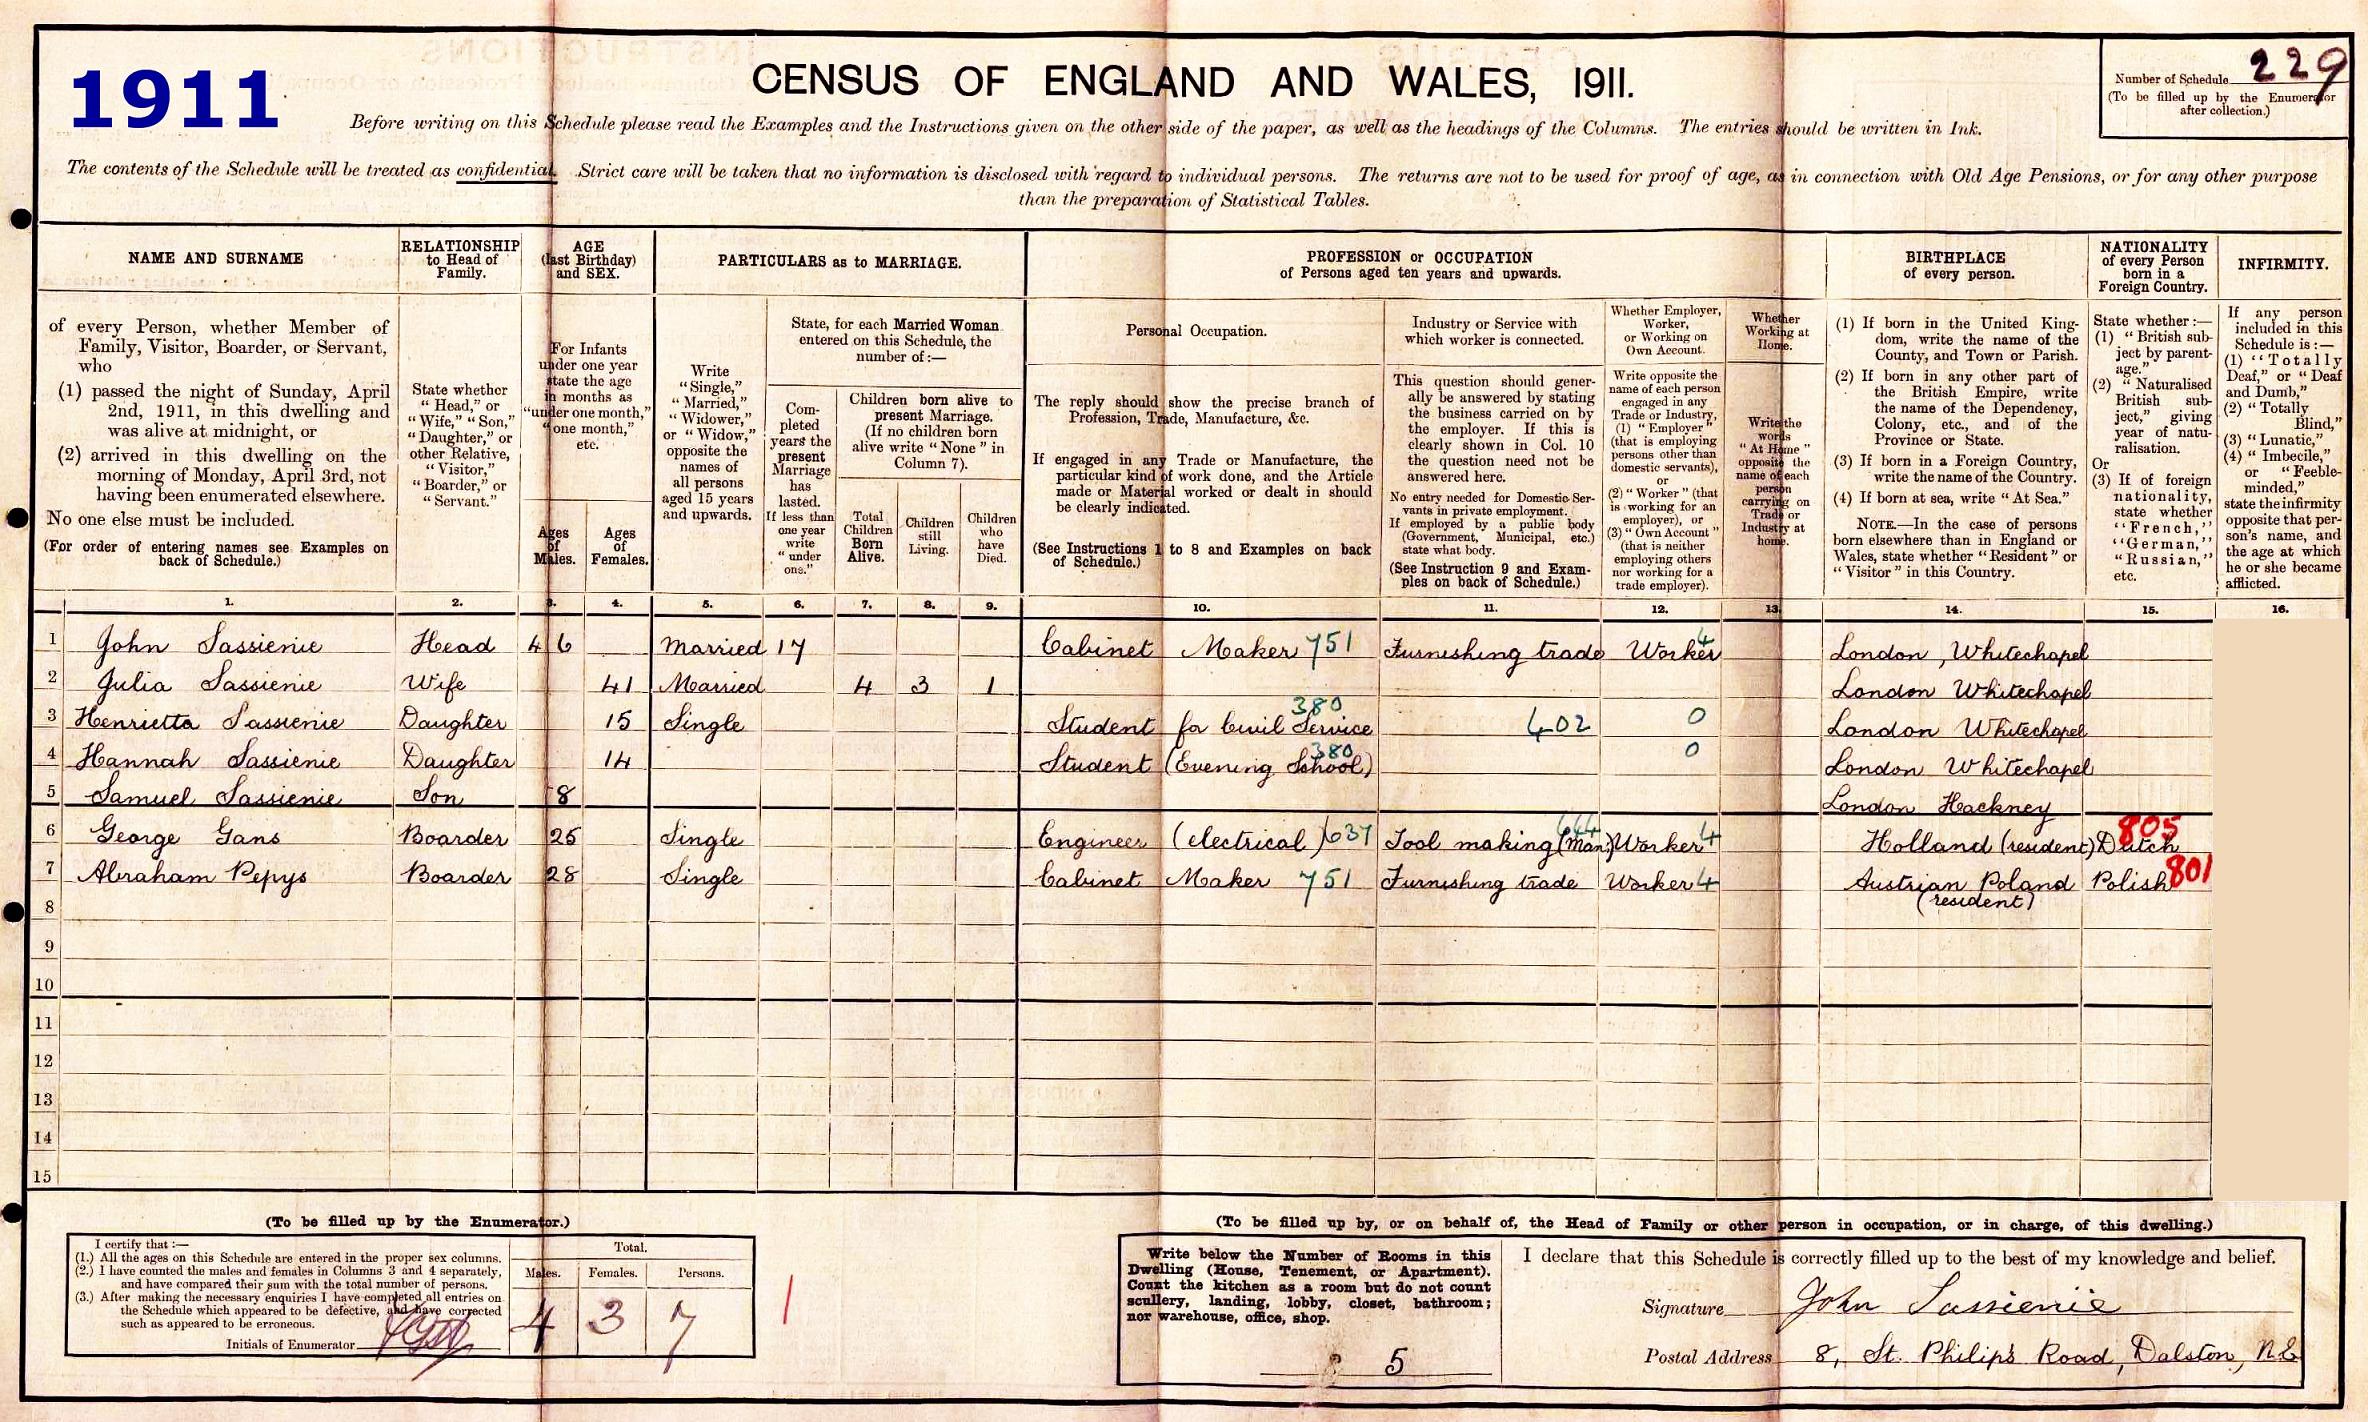 1911
CENSUS OF ENGLAND AND WALES, 1911.
Number of Schedule 229
(To be filled up by the Enumerator
after collection.)
Before writing on this Schedule please read the Examples and the Instructions given on the other side of the paper, as well as the headings of the Columns. The entries should be written in Ink.
The contents of the Schedule will be treated as confidential. Strict care will be taken that no information is disclosed with regard to individual persons. The returns are not to be used for proof of age, as in connection with Old Age Pensions, or for any other purpose
than the preparation of Statistical Tables.
NAME AND SURNAME
of every Person, whether Member of
Family, Visitor, Boarder, or Servant,
who
(1) passed the night of Sunday, April
2nd, 1911, in this dwelling and
was alive at midnight, or
(2) arrived in this dwelling on the
morning of Monday, April 3rd, not
having been enumerated elsewhere.
No one else must be included.
(For order of entering names see Examples on
back of Schedule.)
RELATIONSHIP
to Head of
Family.
State whether
"Head," or
"Wife," "Son,"
"Daughter," or
other Relative,
"Visitor,"
"Boarder," or
"Servant."
AGE
(last Birthday)
and SEX.
For Infants
under one year
state the age
in months as
"under one month,"
"one month,"
etc.
Ages
of
Males.
Ages
of
Females.
PARTICULARS as to MARRIAGE.
Write
"Single,"
"Married,"
"Widower,"
or "Widow,"
opposite the
names of
all persons
aged 15 years
and upwards.
State, for each Married Woman
entered on this Schedule, the
number of:—
Com-
pleted
years the
present
Marriage
has
lasted.
If less than
one year
write
"under
one."
Children born alive to
present Marriage.
(If no children born
alive write "None" in
Column 7).
Total
Children
Born
Alive.
Children
still
Living.
Children
who
have
Died.
PROFESSION or OCCUPATION
of Persons aged ten years and upwards.
Personal Occupation.
The reply should show the precise branch of
Profession, Trade, Manufacture, &c.
If engaged in any Trade or Manufacture, the
particular kind of work done, and the Article
made or Material worked or dealt in should
be clearly indicated.
(See Instructions 1 to 8 and Examples on back
of Schedule.)
Industry or Service with
which worker is connected.
This question should gener-
ally be answered by stating
the business carried on by
the employer. If this is
clearly shown in Col. 10
the question need not be
answered here.
No entry needed for Domestic Ser-
vants in private employment.
If employed by a public body
(Government, Municipal, etc.)
state what body.
(See Instruction 9 and Exam-
ples on back of Schedule.)
Whether Employer,
Worker,
or Working on
Own Account.
Write opposite the
name of each person
engaged in any
Trade or Industry,
(1) "Employer"
(that is employing
persons other than
domestic servants),
or
(2) "Worker" (that
is working for an
employer), or
(3) "Own Account"
(that is neither
employing others
nor working for a
trade employer).
Whether
Working at
Home.
Write the
words
"At Home"
opposite the
name of each
person
carrying on
Trade or
Industry at
home.
BIRTHPLACE
of every person.
(1) If born in the United King-
dom, write the name of the
County, and Town or Parish.
(2) If born in any other part of
the British Empire, write
the name of the Dependency,
Colony, etc., and of the
Province or State.
(3) If born in a Foreign Country,
write the name of the Country.
(4) If born at sea, write "At Sea."
NOTE.—In the case of persons
born elsewhere than in England or
Wales, state whether "Resident" or
"Visitor" in this Country.
NATIONALITY
of every Person
born in a
Foreign Country.
State whether:—
(1) "British sub-
ject by parent-
age."
(2) "Naturalised
British sub-
ject," giving
year of natu-
ralisation.
Or
(3) If of foreign
nationality,
state whether
"French,"
"German,"
"Russian,"
etc.
INFIRMITY.
If any person
included in this
Schedule is:—
(1) "Totally
Deaf," or "Deaf
and Dumb,"
(2) "Totally
Blind,"
(3) "Lunatic,"
(4) "Imbecile,"
or "Feeble-
minded,"
state the infirmity
opposite that per-
son's name, and
the age at which
he or she became
afflicted.
1. 2. 3. 4. 5. 6. 7. 8. 9. 10. 11. 12. 13. 14. 15. 16.
1 John Sassienie Head 46 Married 17 Cabinet Maker 751 Furnishing trade Worker 4 London, Whitechapel
2 Julia Sassienie Wife 41 Married 4 3 1 London Whitechapel
3 Henrietta Sassienie Daughter 15 Single Student for Civil Service 380 402 0 London Whitechapel
4 Hannah Sassienie Daughter 14 Student (Evening School) 380 0 London Whitechapel
5 Samuel Sassienie Son 8 London Hackney
6 George Gans Boarder 25 Single Engineer (electrical) 637 Tool making (Man:) 644 Worker 4 Holland (resident) Dutch 805
7 Abraham Pepys Boarder 28 Single Cabinet Maker 751 Furnishing trade Worker 4 Austrian Poland Polish 801
(resident)
8
9
10
11
12
13
14
15
(To be filled up by the Enumerator.)
I certify that:—
(1.) All the ages on this Schedule are entered in the proper sex columns.
(2.) I have counted the males and females in Columns 3 and 4 separately,
and have compared their sum with the total number of persons.
(3.) After making the necessary enquiries I have completed all entries on
the Schedule which appeared to be defective, and have corrected
such as appeared to be erroneous.
Initials of Enumerator
Total.
Males. Females. Persons.
4 3 7
(To be filled up by, or on behalf of, the Head of Family or other person in occupation, or in charge, of this dwelling.)
Write below the Number of Rooms in this
Dwelling (House, Tenement, or Apartment).
Count the kitchen as a room but do not count
scullery, landing, lobby, closet, bathroom;
nor warehouse, office, shop.
5
I declare that this Schedule is correctly filled up to the best of my knowledge and belief.
Signature John Sassienie
Postal Address 8, St. Philip's Road, Dalston, N.E.